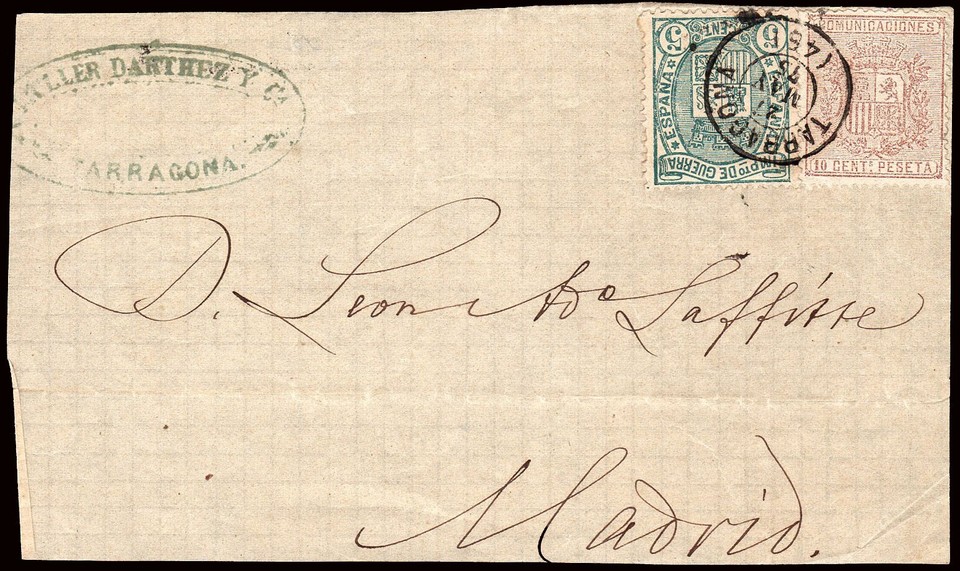 DARTHEZ Y Cª
TARRAGONA.
5 CENTS 5
ESPAÑA
IMPTO DE GUERRA
TARRAGONA
COMUNICACIONES
10 CENTS PESETA
D. Leon Ado Laffitte
Madrid.